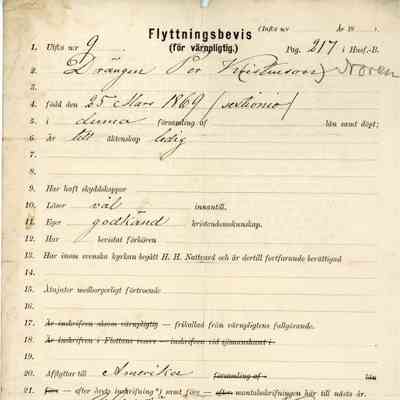 Flyttningsbevis (Infl:s n:r År 18
(för värnpligtig.)
1. Utfl:s n:r 9. Pag. 217 i Husf.-B.
2. Drängen Per Kristensson) Noren
3.
4. född den 25 Mars 1869 (
5. i denna församling af län samt döpt;
6. är till äktenskap ledig
7.
8.
9. Har haft skyddskoppor
10. Läser väl innantill.
11. Eger godkänd kristendomskunskap.
12. Har bevistat förhören
13. Har inom svenska kyrkan begått H. H. Nattvard och är dertill fortfarande berättigad
14.
15. Åtnjuter medborgerligt förtroende
16.
17. Är inskrifven såsom värnpligtig — frikallad från värnpligtens fullgörande.
18. Är inskrifven i Flottans reserv — inskrifven vid sjömanshuset i
19.
20. Afflyttar till Amerika församling af län
21. före — efter årets inskrifning*) samt före — efter mantalsskrifningen här till nästa år.